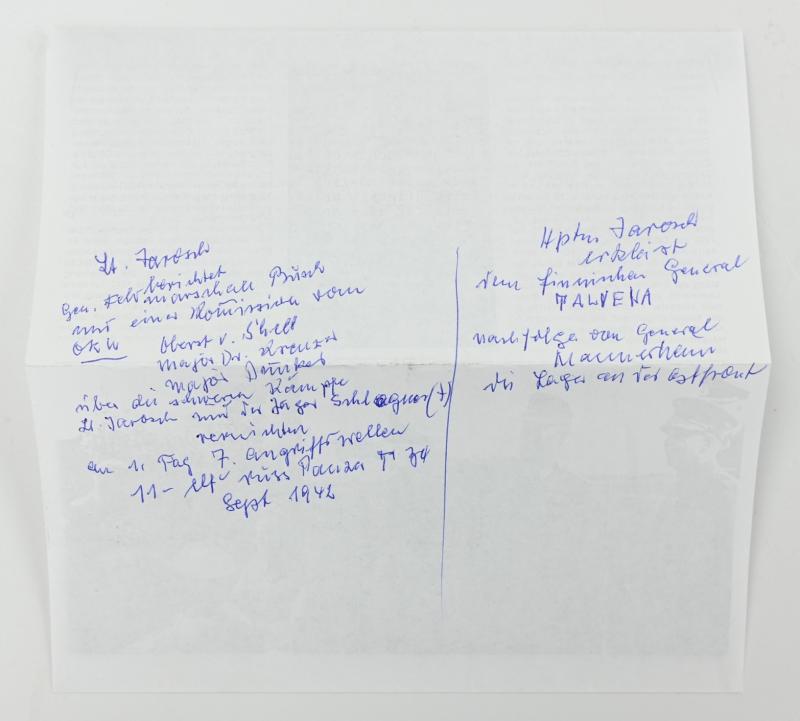 Lt. Jarosch
berichtet
Gen. Feldmarschall Busch
und einer Komission vom
OKW Oberst v. Shell
Major Dr.
Major
über die schweren Kämpfe
Lt. Jarosch und der Jäger Schlagner (†)
vernichten
an 1. Tag 7. Angriffswellen
11 - elf russ Panzer T 34
Sept 1942
Hptm Jarosch
erklärt
dem finnischen General
TALVENA
nachfolger von General
Mannerheim
die Lage an der Ostfront